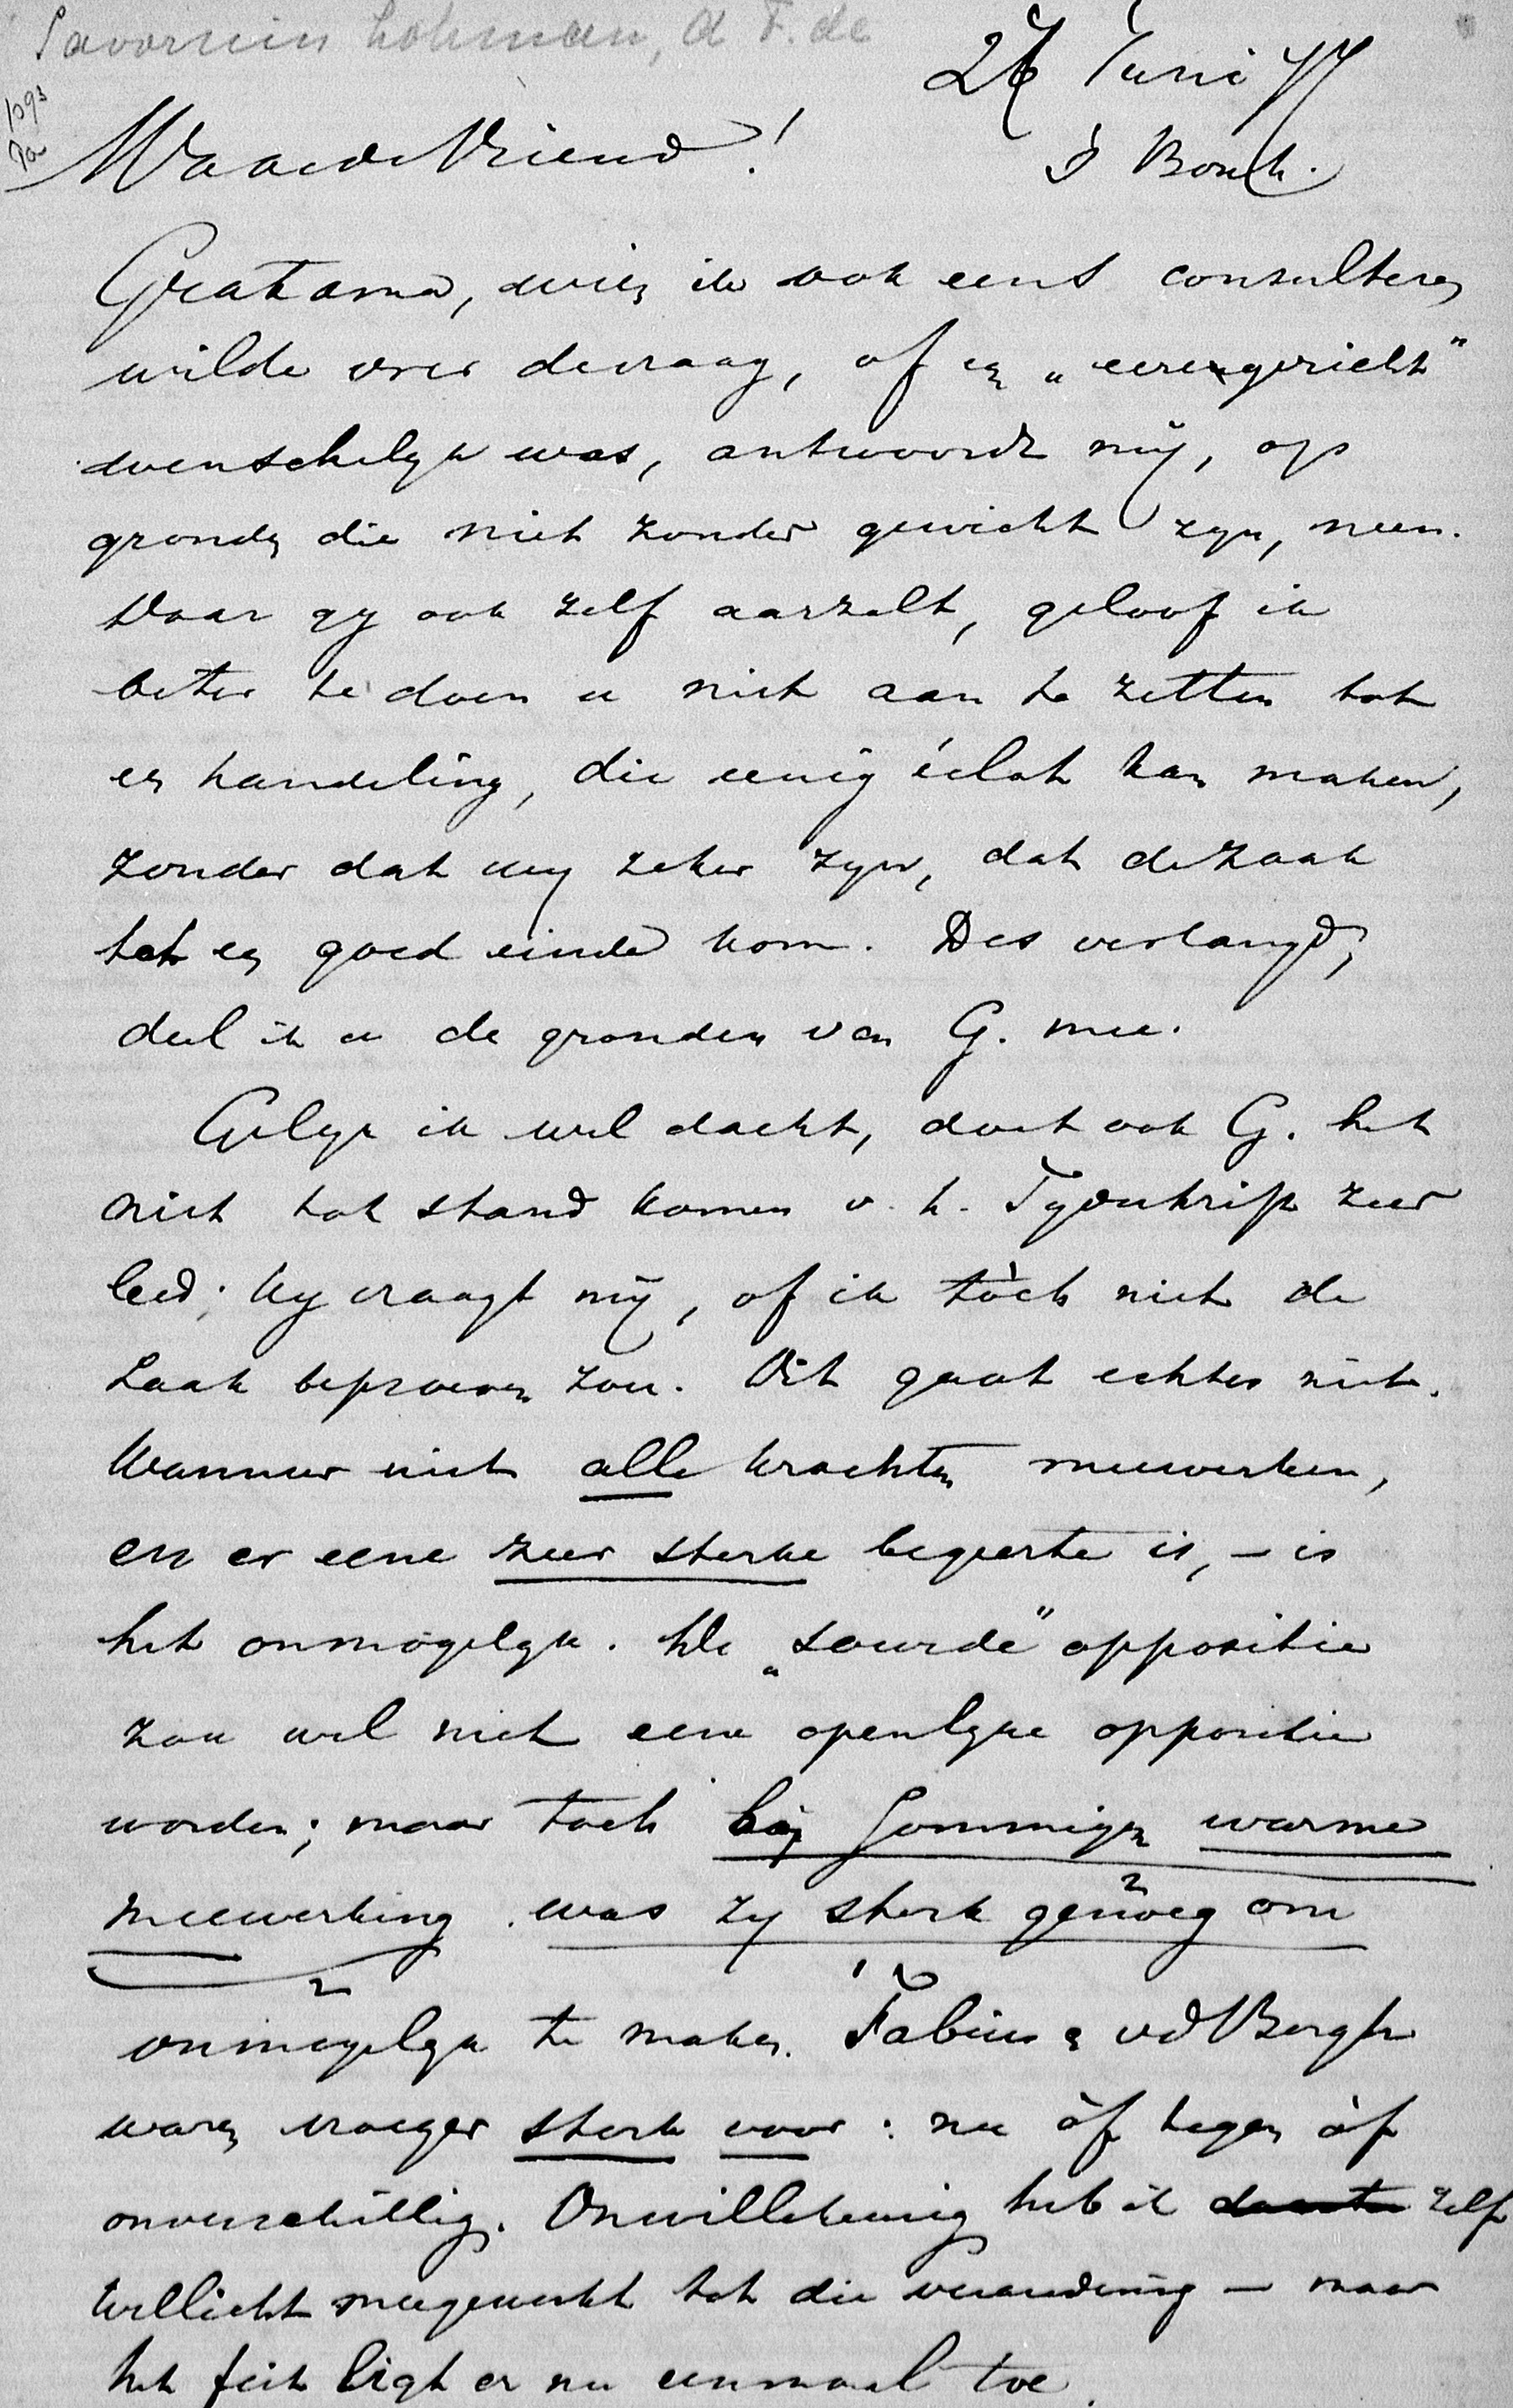 Savornin Lohman, A F. de
27 Juni 77
1093
Waarde Vriend!
's Bosch.
Gratama, wien ik ook eens consulteren
wilde over de vraag, of een „eeregericht"
wenschelyk was, antwoordt mij, op
gronden die niet zonder gewicht zyn, neen.
Daar gy ook zelf aarzelt, geloof ik
beter te doen u niet aan te zetten tot
een handeling, die eenig éclat kan maken,
zonder dat wy zeker zyn, dat de zaak
tot een goed einde kom. Des verlangd,
deel ik u de gronden van G. mee.
Gelyk ik wel dacht, doet ook G. het
niet tot stand komen v. h. Tydschrift zeer
leed; hy vraagt mij, of ik tòch niet de
zaak beproeven zou. Dit gaat echter niet.
Wanneer niet alle krachten meewerken,
en er eene zeer sterke begeerte is, – is
het onmogelyk. De „sourde" oppositie
zou wel niet eene openlyke oppositie
worden; maar toch bij sommigen warme
meewerking was zy sterk genoeg om
onmogelyk te maken. Fabius & vd Bergh
waren vroeger sterk voor: nu òf tegen òf
onverschillig. Onwillekeurig heb ik zelf
wellicht meegewerkt tot die verandering – maar
het feit ligt er nu eenmaal toe.